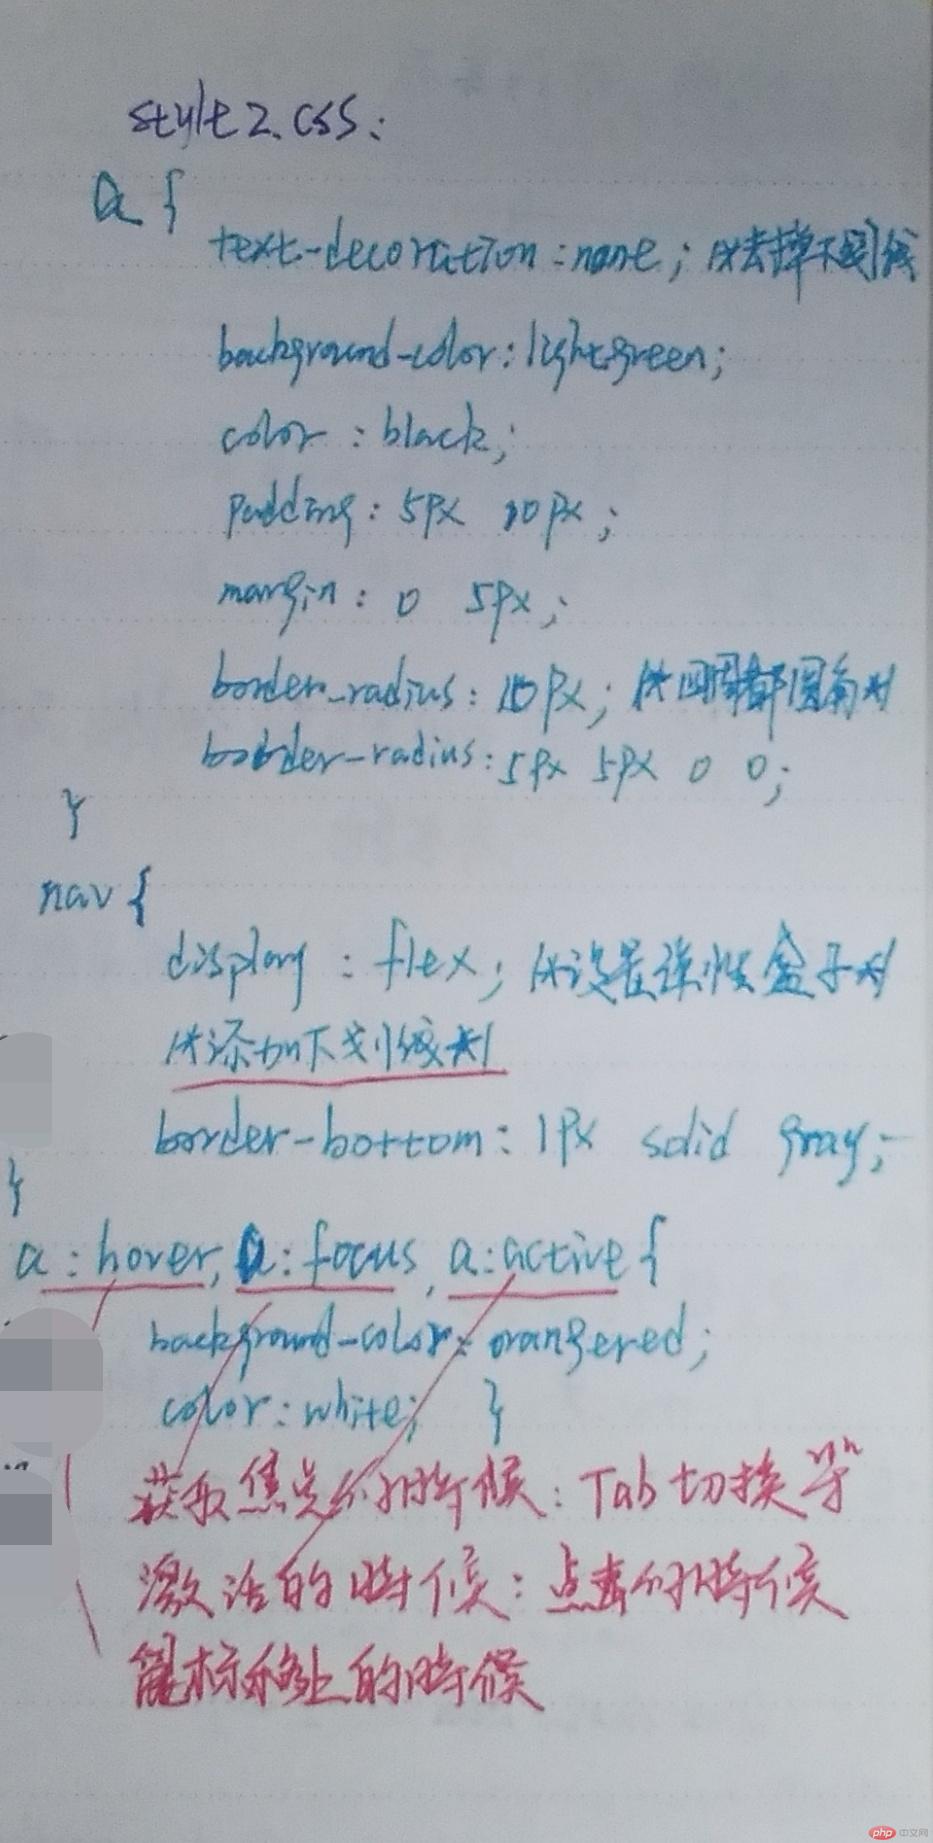 style2.css:
a {
text-decoration:none; /*去掉下划线
background-color:lightgreen;
color:black;
padding:5px 10px;
margin:0 5px;
border-radius:10px; /*四周都圆角*/
border-radius:5px 5px 0 0;
}
nav{
display:flex; /*设置弹性盒子*/
/*添加下划线*/
border-bottom:1px solid gray;
}
a:hover, a:focus, a:active{
background-color:orangered;
color:white; }
获取焦点的时候:Tab切换等
激活的时候:点击的时候
鼠标移上的时候
php 中文网